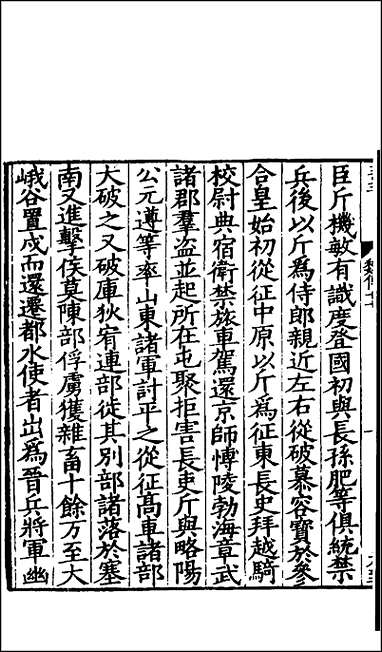 臣斤機敏有識度登國初與長孫肥等俱統禁
兵後以斤爲侍郎親近左右從破慕容寶於參
合皇始初從征中原以斤爲征東長史拜越騎
校尉典宿衛禁旅車駕還京師愽陵勃海章武
諸郡羣盜並起所在屯聚拒害長吏斤與略陽
公元遵等率山東諸軍討平之從征髙車諸部
大破之又破庫狄宥連部徙其别部諸落於塞
南又進擊侯莫陳部俘虜獲雜畜十餘万至大
峨谷置戍而還遷都水使者出爲晉兵將軍幽